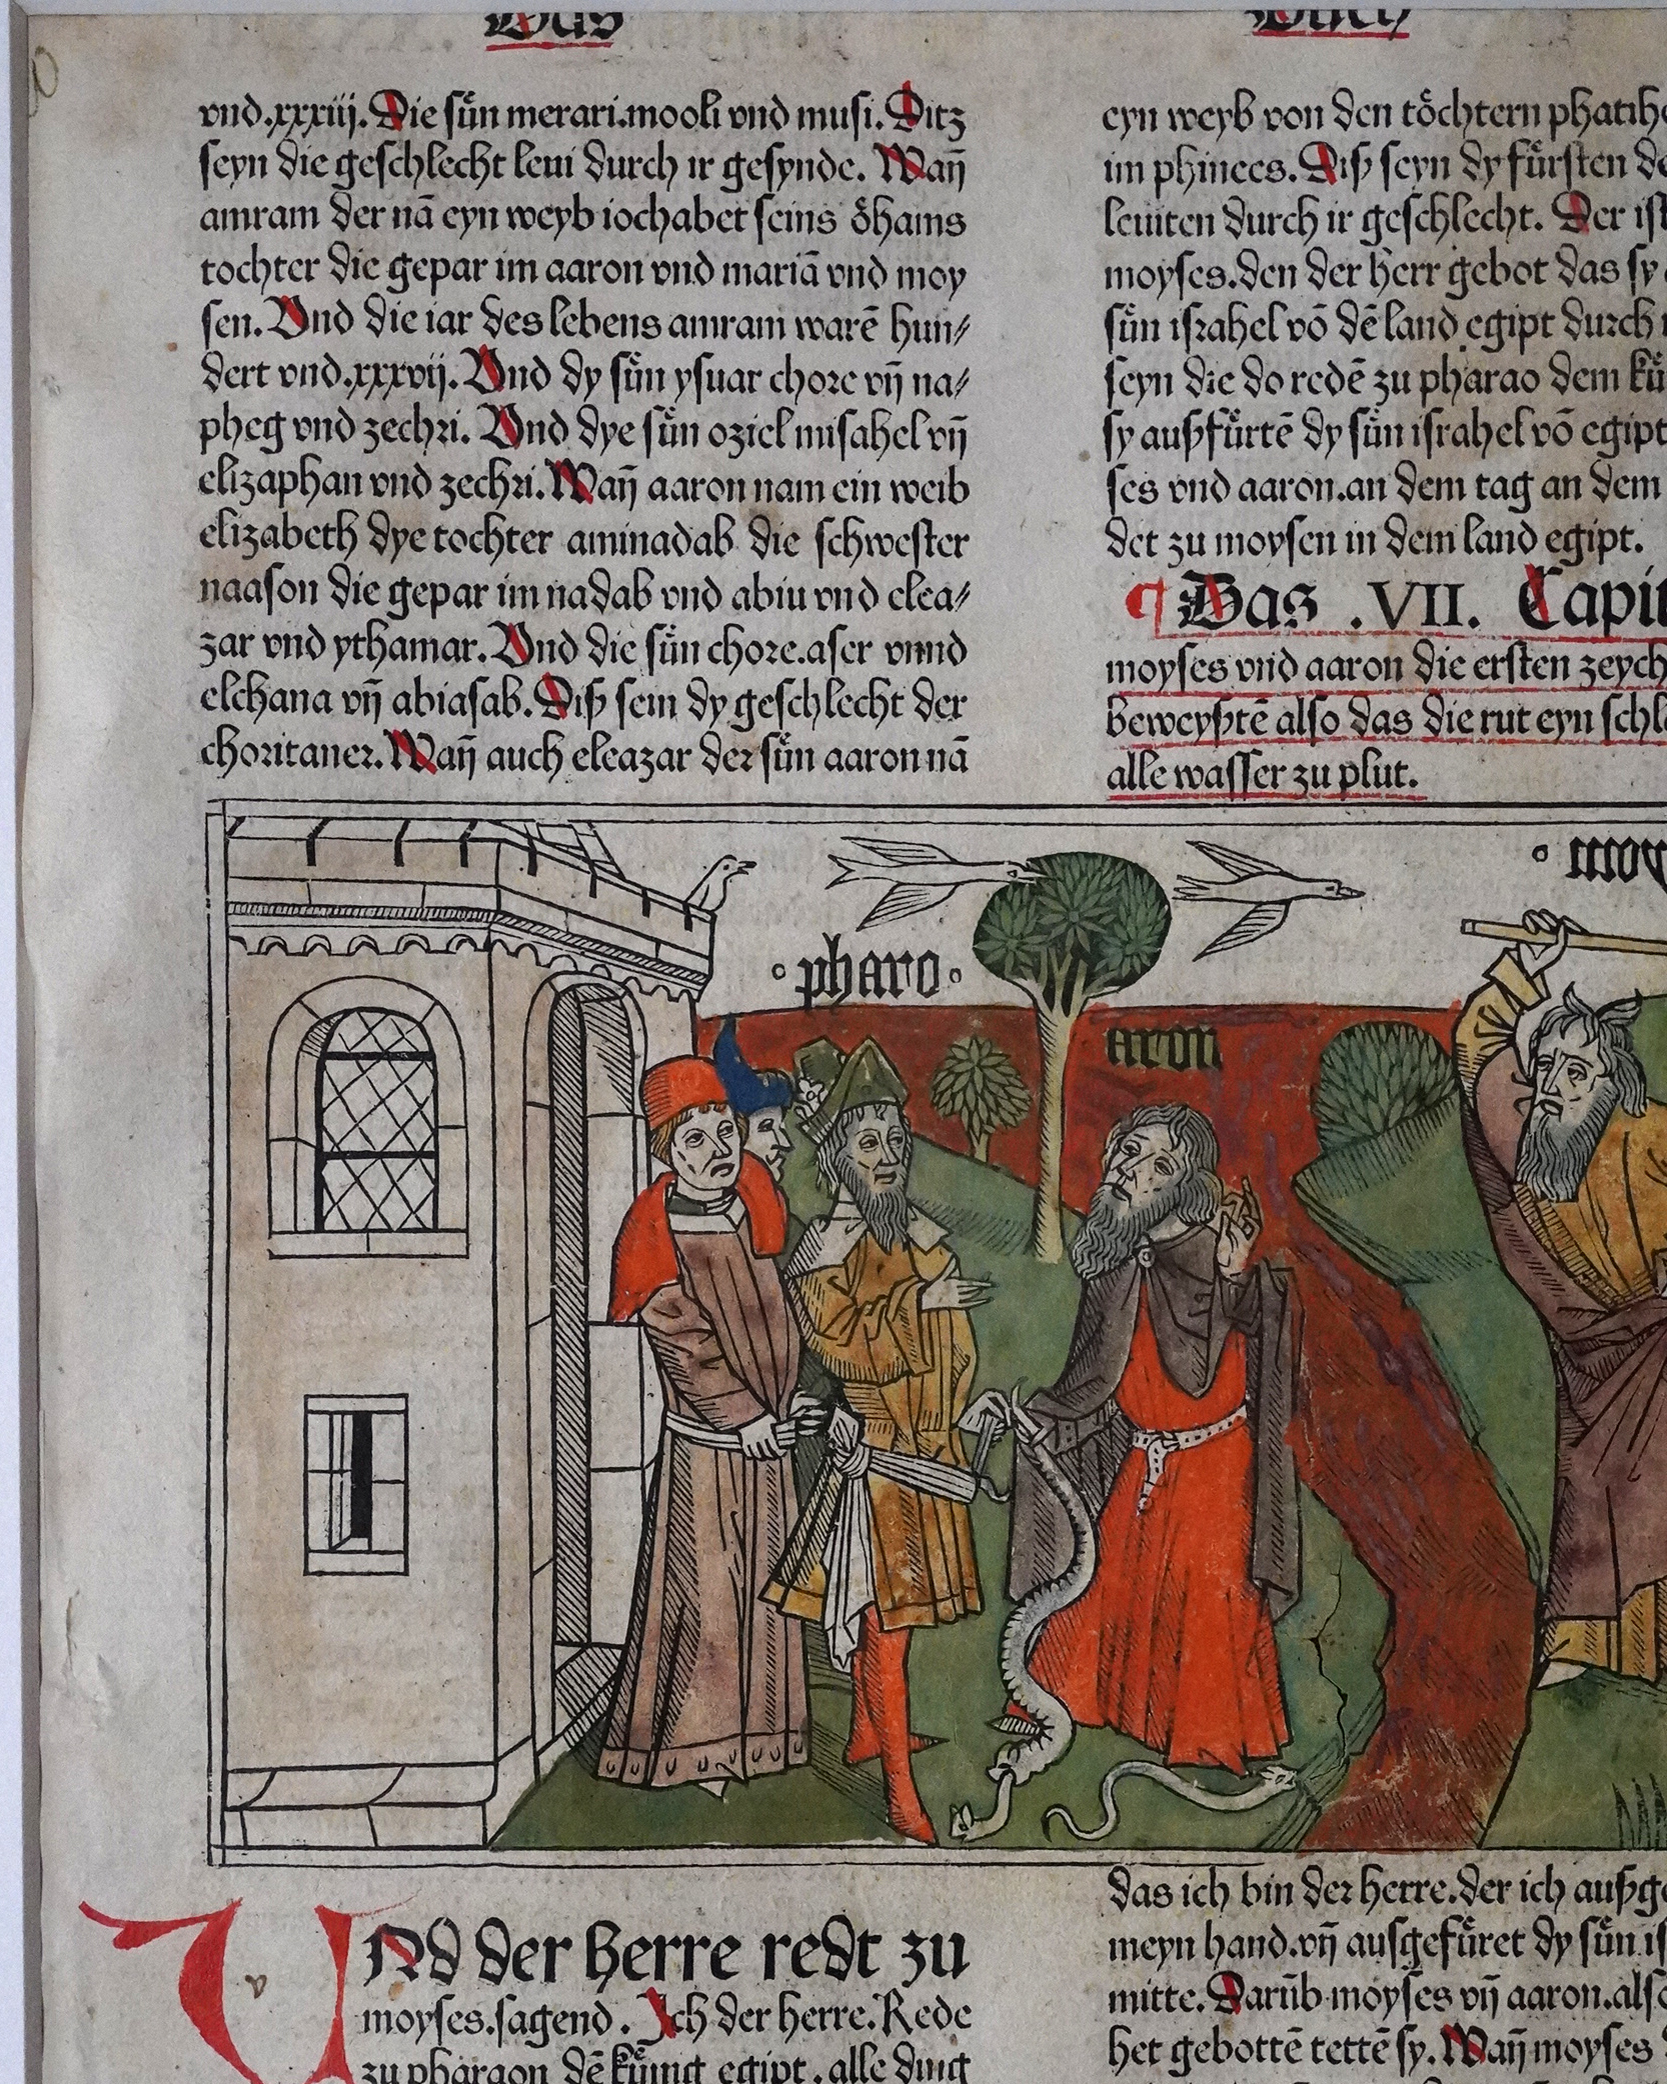 Das
Buch
vnd.xxxiij. Die sůn merari.mooli vnd musi. Ditz
seyn die geschlecht leui durch ir gesynde. Wañ
amram der nā eyn weyb iochabet seins ӧhams
tochter die gepar im aaron vnd mariā vnd moy
sen. Vnd die iar des lebens amram warē hun⸗
dert vnd.xxxvij. Vnd dy sůn ysuar chore vñ na⸗
pheg vnd zechri. Vnd dye sůn oziel misahel vñ
elizaphan vnd zechri. Wañ aaron nam ein weib
elizabeth dye tochter aminadab die schwester
naason die gepar im nadab vnd abiu vnd elea⸗
zar vnd ythamar. Vnd die sůn chore.aser vnnd
elchana vñ abiasab. Diß sein dy geschlecht der
choritaner. Wañ auch eleazar der sůn aaron nā
eyn weyb von den tӧchtern
im phinees. Diß seyn dy fůrsten
leuiten durch ir geschlecht. Der
moyses.den der herr gebot das sy
sůn israhel vō dē land egipt durch
seyn die do redē zu pharao dem
sy außfůrtē dy sůn israhel vō egipt
ses vnd aaron.an dem tag an dem
det zu moysen in dem land egipt.
¶ Das .VII. Capi
moyses vnd aaron die ersten
beweyßtē also das die rut eyn
alle wasser zu plut.
pharo
aron
VNd der herre redt zu
moyses.sagend. Ich der herre. Rede
zu pharaon dē kůnig egipt. alle ding
das ich bin der herre.der ich
meyn hand.vñ ausgefůret dy sůn
mitte. Darūb moyses vñ aaron.
het gebottē tettē sy. Wañ moyses